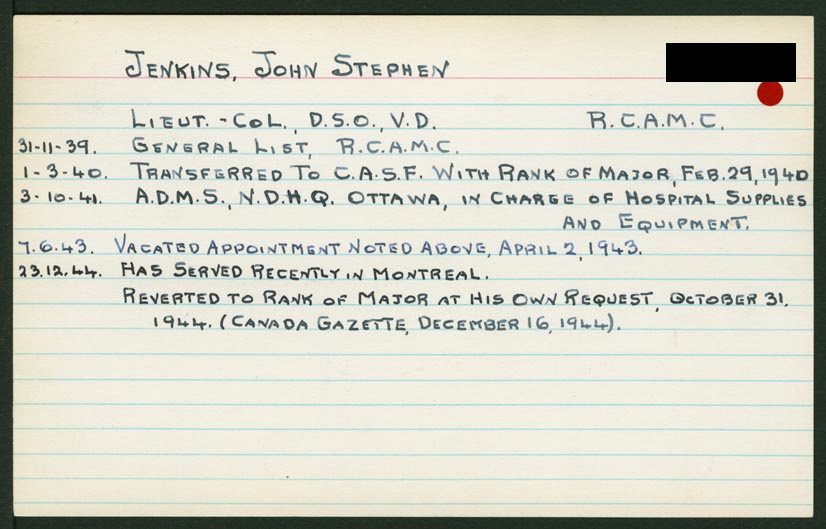 JENKINS, JOHN STEPHEN
LIEUT. - COL., D.S.O., V.D. R.C.A.M.C.
31-11-39. GENERAL LIST, R.C.A.M.C.
1-3-40. TRANSFERRED TO C.A.S.F. WITH RANK OF MAJOR, FEB. 29, 1940
3-10-41. A.D.M.S., N.D.H.Q. OTTAWA, IN CHARGE OF HOSPITAL SUPPLIES
AND EQUIPMENT.
7.6.43. VACATED APPOINTMENT NOTED ABOVE, APRIL 2, 1943.
23.12.44. HAS SERVED RECENTLY IN MONTREAL.
REVERTED TO RANK OF MAJOR AT HIS OWN REQUEST, OCTOBER 31,
1944. (CANADA GAZETTE, DECEMBER 16, 1944).